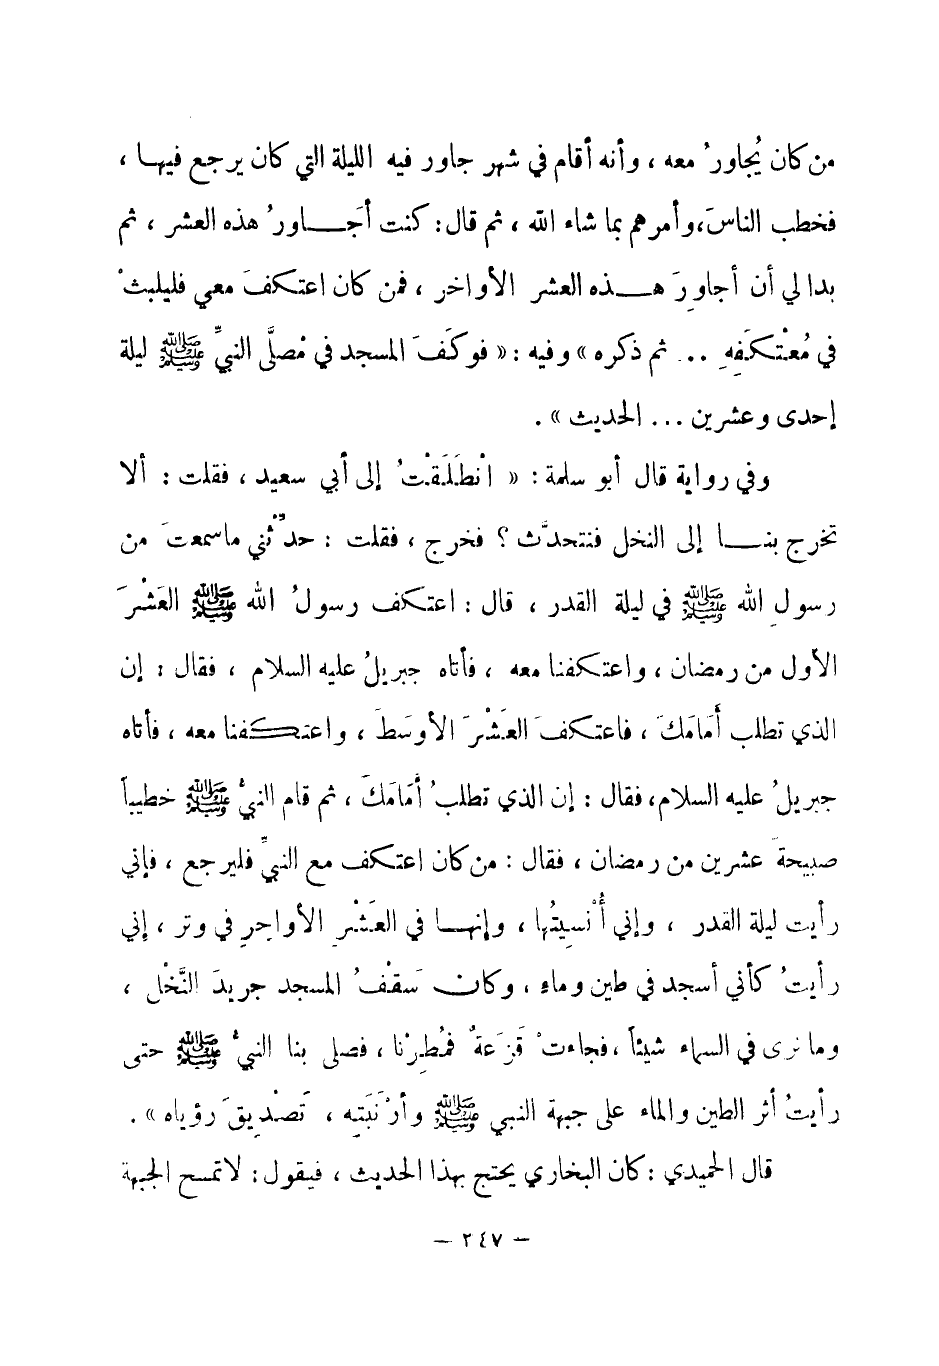 من كان يُجاورُ معه ، وأنه أقام في شهر جاور فيه الليلة التي كان يرجع فيها ،
فخطب الناسَ،وأمرهم بما شاء الله ، ثم قال: كنت أجـاورُ هذه العشر ، ثم
بدا لي أن أجاوِرَ هـذه العشر الأواخر ، فمن كان اعتكفَ معي فليلبثْ
في مُعْتكَفِهِ ... ثم ذكره » وفيه : « فوكَفَ المسجد في مُصلَّى النبيِّ ﷺ ليلة
إحدى وعشرين ... الحديث » .
وفي رواية قال أبو سلمة : « انْطَلَقْتُ إلى أبي سعيد ، فقلت : ألا
تخرج بنـا إلى النخل فنتحدَّث ؟ فخرج ، فقلت : حدِّثني ما سمعتَ من
رسولِ الله ﷺ في ليلة القدر ، قال : اعتكف رسولُ الله ﷺ العَشْرَ
الأول من رمضان ، واعتكفنا معه ، فأتاه جبريلُ عليه السلام ، فقال : إن
الذي تطلب أَمَامَكَ ، فاعتكفَ العَشْرَ الأوسَطَ ، واعتكفنا معه ، فأتاه
جبريلُ عليه السلام، فقال : إن الذي تطلبُ أَمَامَكَ ، ثم قام النبيُّ ﷺ خطيباً
صبيحةَ عشرين من رمضان ، فقال : من كان اعتكف مع النبيِّ فليرجع ، فإني
رأيت ليلة القدر ، وإني أُنْسِيتُها ، وإنهـا في العَشْرِ الأواخِرِ في وتر ، إني
رأيتُ كأني أسجد في طين وماءٍ ، وكان سَقْفُ المسجد جريدَ النَّخْلِ ،
وما نرى في السماء شيئاً ، فجاءتْ قَزَعةٌ فَمُطِرْنا ، فصلى بنا النبيُّ ﷺ حتى
رأيتُ أثر الطين والماء على جبهة النبي ﷺ وأرْنَبَتِهِ ، تَصْدِيقَ رؤياه » .
قال الحميدي : كان البخاري يحتج بهذا الحديث ، فيقول : لا تمسح الجبهة
– ٢٤٧ –